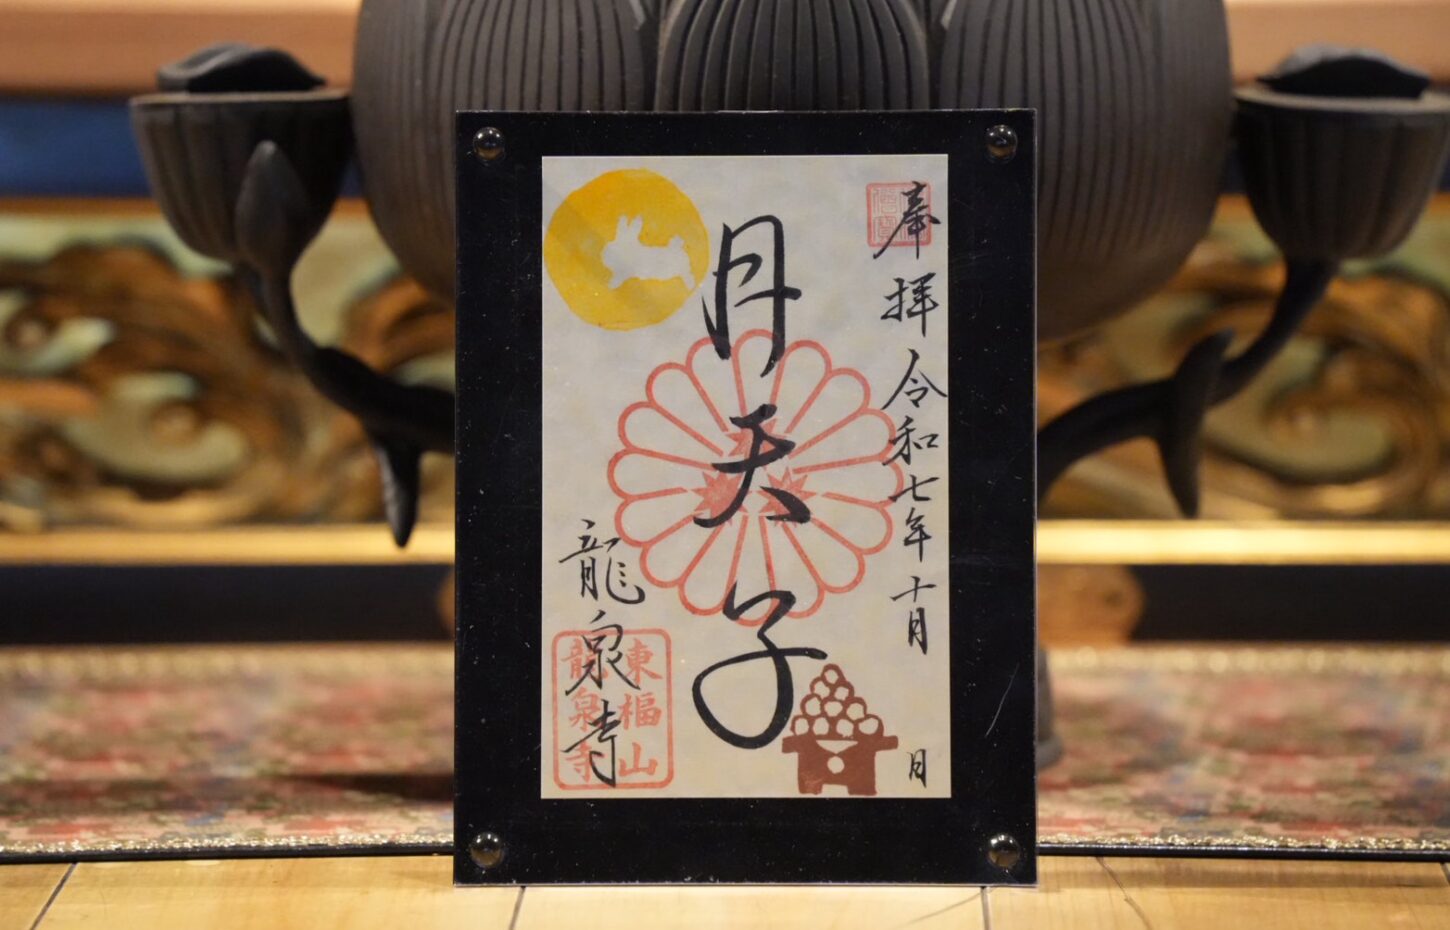 奉拝 令和七年十月 日
月天子
龍泉寺
東福山
龍泉寺